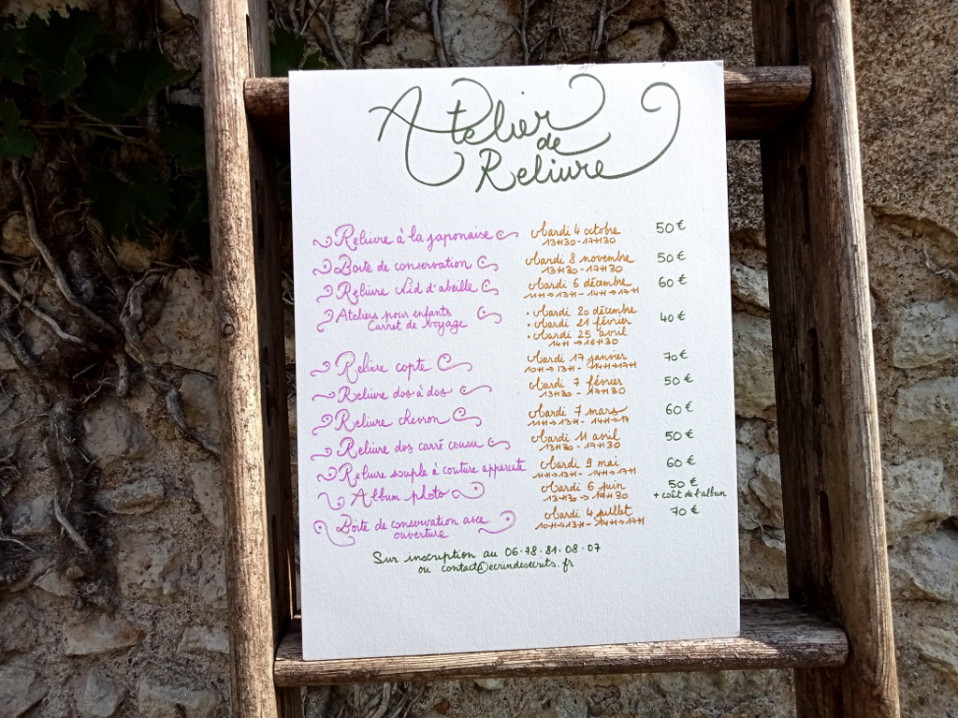 Atelier
de
Reliure
Reliure à la japonaise Mardi 4 octobre 50€
13H30-17H30
Boîte de conservation Mardi 8 novembre 50€
13H30-17H30
Reliure Nid d'abeille Mardi 6 décembre 60€
11H→13H - 14H→17H
Ateliers pour enfants • Mardi 20 décembre
Carnet de voyage • Mardi 21 février 40€
• Mardi 25 avril
14H→16H30
Reliure copte Mardi 17 janvier 70€
10H→13H - 14H→17H
Reliure dos à dos Mardi 7 février 50€
13H30 - 17H30
Reliure chevron Mardi 7 mars 60€
11H→13H - 14H→17
Reliure dos carré cousu Mardi 11 avril 50€
13H30 - 17H30
Reliure souple à couture apparente Mardi 9 mai 60€
11H→13H - 14H→17H
Album photo Mardi 6 juin 50€
13H30→17H30 + coût de l'album
Boîte de conservation avec Mardi 4 juillet 70€
ouverture 10H→13H - 14H→17H
Sur inscription au 06.78.81.08.07
ou contact@ecrindesecrits.fr